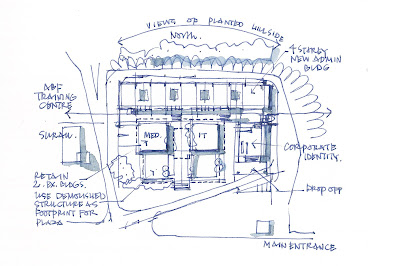 VIEWS OF PLANTED HILLSIDE
NORTH.
4 STOREY
NEW ADMIN
BLDG
ABF
TRAINING
CENTRE
SURAU.
MED.
IT
CORPORATE
IDENTITY.
RETAIN
2. EX. BLDGS.
USE DEMOLISHED
STRUCTURE AS
FOOTPRINT FOR
PLAZA
DROP OFF
MAIN ENTRANCE